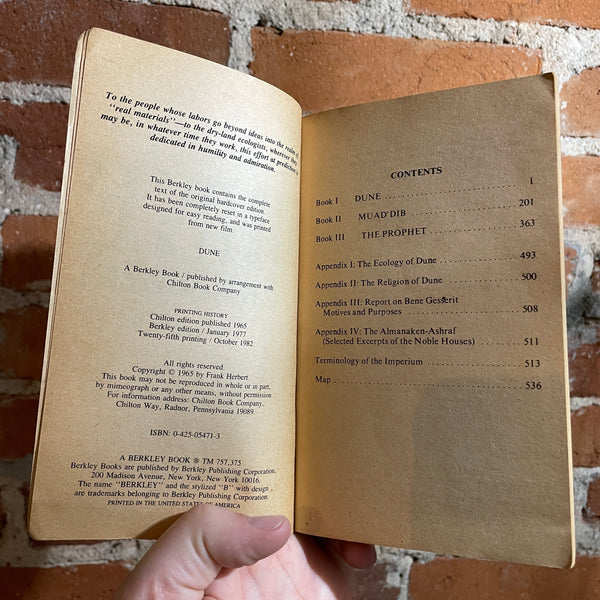 To the people whose labors go beyond ideas into the realm of
"real materials"—to the dry-land ecologists, wherever they
may be, in whatever time they work, this effort at prediction is
dedicated in humility and admiration.
This Berkley book contains the complete
text of the original hardcover edition.
It has been completely reset in a typeface
designed for easy reading, and was printed
from new film.
DUNE
A Berkley Book / published by arrangement with
Chilton Book Company
PRINTING HISTORY
Chilton edition published 1965
Berkley edition / January 1977
Twenty-fifth printing / October 1982
All rights reserved.
Copyright © 1965 by Frank Herbert.
This book may not be reproduced in whole or in part,
by mimeograph or any other means, without permission.
For information address: Chilton Book Company,
Chilton Way, Radnor, Pennsylvania 19089.
ISBN: 0-425-05471-3
A BERKLEY BOOK ® TM 757,375
Berkley Books are published by Berkley Publishing Corporation,
200 Madison Avenue, New York, New York 10016.
The name "BERKLEY" and the stylized "B" with design
are trademarks belonging to Berkley Publishing Corporation.
PRINTED IN THE UNITED STATES OF AMERICA
CONTENTS
Book I DUNE 1
Book II MUAD'DIB 201
Book III THE PROPHET 363
Appendix I: The Ecology of Dune 493
Appendix II: The Religion of Dune 500
Appendix III: Report on Bene Gesserit
Motives and Purposes 508
Appendix IV: The Almanaken-Ashraf
(Selected Excerpts of the Noble Houses) 511
Terminology of the Imperium 513
Map 536